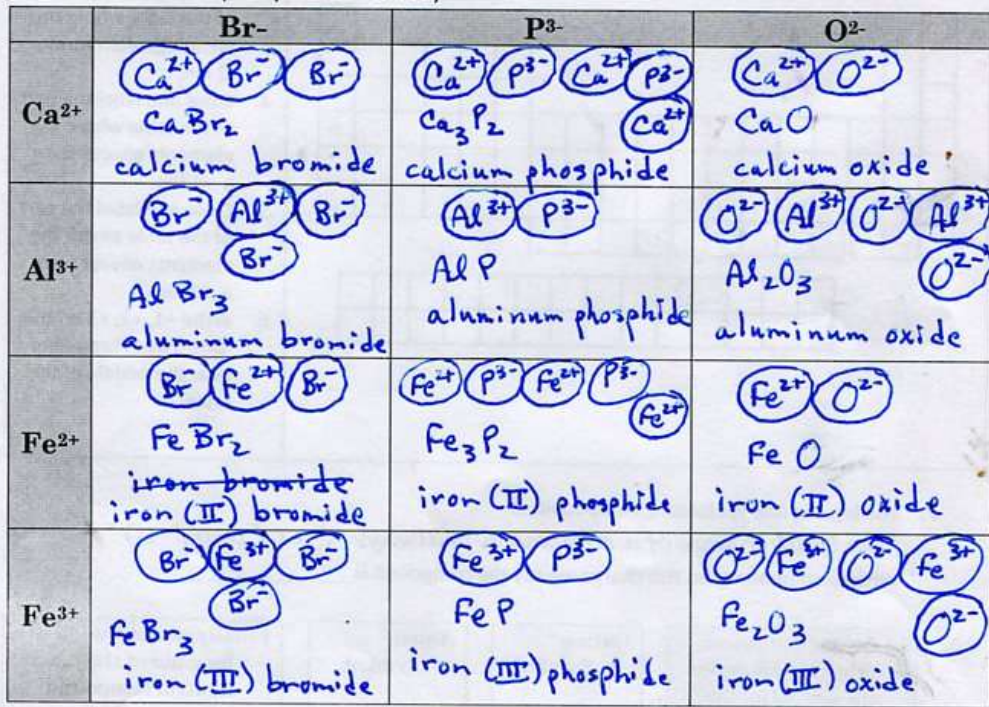 Br-	P³-	O²-
Ca²⁺
Ca²⁺ Br⁻ Br⁻
CaBr₂
calcium bromide
Ca²⁺ P³⁻ Ca²⁺ P³⁻
Ca²⁺
Ca₃P₂
calcium phosphide
Ca²⁺ O²⁻
CaO
calcium oxide
Al³⁺
Br⁻ Al³⁺ Br⁻
Br⁻
AlBr₃
aluminum bromide
Al³⁺ P³⁻
AlP
aluminum phosphide
O²⁻ Al³⁺ O²⁻ Al³⁺
O²⁻
Al₂O₃
aluminum oxide
Fe²⁺
Br⁻ Fe²⁺ Br⁻
FeBr₂
iron bromide
iron (II) bromide
Fe²⁺ P³⁻ Fe²⁺ P³⁻
Fe²⁺
Fe₃P₂
iron (II) phosphide
Fe²⁺ O²⁻
FeO
iron (II) oxide
Fe³⁺
Br⁻ Fe³⁺ Br⁻
Br⁻
FeBr₃
iron (III) bromide
Fe³⁺ P³⁻
FeP
iron (III) phosphide
O²⁻ Fe³⁺ O²⁻ Fe³⁺
O²⁻
Fe₂O₃
iron (III) oxide